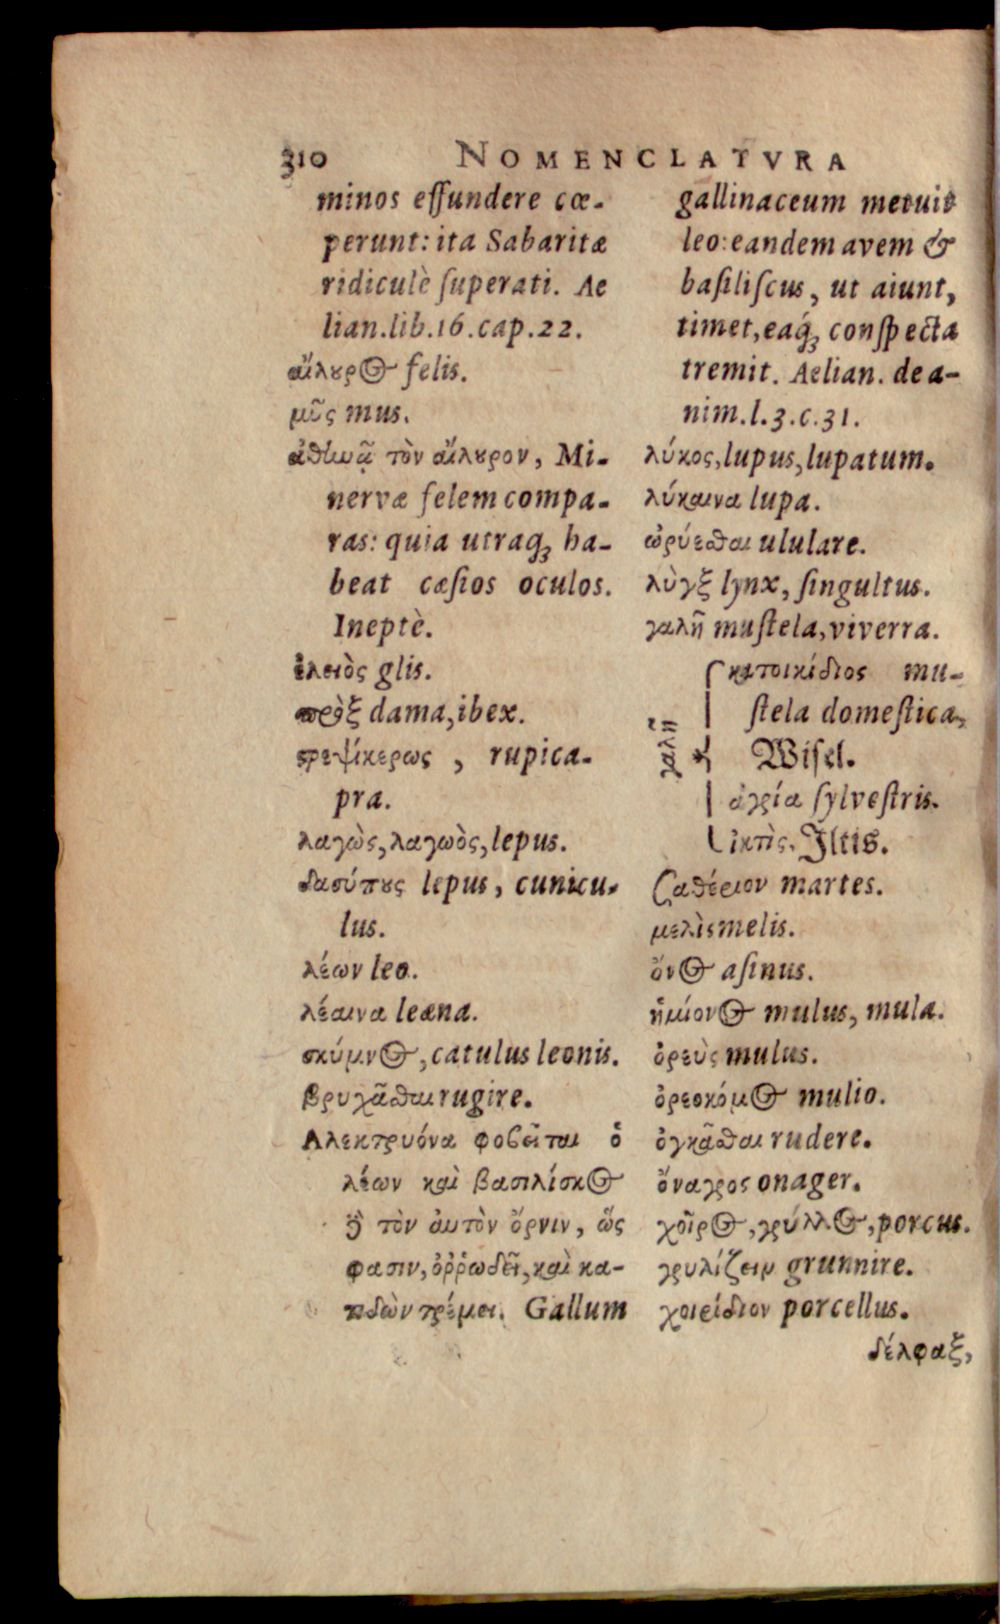 310 NOMENCLATVRA
minos effundere cœ-
perunt: ita Sabaritæ
ridiculè ſuperati. Ae
lian.lib.16.cap.22.
αἴλουρος felis.
μῦς mus.
ἀθηνᾷ τὸν αἴλουρον, Mi-
nervæ felem compa-
ras: quia utraq; ha-
beat cæſios oculos.
Ineptè.
ἐλειὸς glis.
πρὸξ dama, ibex.
στρεψίκερως, rupica-
pra.
λαγὼς, λαγωὸς, lepus.
δασύπους lepus, cunicu-
lus.
λέων leo.
λέαινα leæna.
σκύμνος, catulus leonis.
βρυχᾶσθαι rugire.
Αλεκτρυόνα φοβεῖται ὁ
λέων καὶ βασιλίσκος
ἢ τὸν αὐτὸν ὄρνιν, ὥς
φασιν, ὀῤῥωδεῖ, καὶ κα-
τιδὼν τρέμει. Gallum
gallinaceum metuit
leo: eandem avem &
baſiliſcus, ut aiunt,
timet, eaq́; conſpecta
tremit. Aelian. de a-
nim.l.3.c.31.
λύκος, lupus, lupatum.
λύκαινα lupa.
ὠρύεσθαι ululare.
λὺγξ lynx, ſingultus.
γαλῆ muſtela, viverra.
γαλῆ
κατοικίδιος mu-
ſtela domeſtica,
Wiſel.
ἀγρία ſylveſtris.
ἰκτὶς. Iltis.
ζαθέριον martes.
μελὶς melis.
ὄνος aſinus.
ἡμίονος mulus, mula.
ὀρεὺς mulus.
ὀρεοκόμος mulio.
ὀγκᾶσθαι rudere.
ὄναγρος onager.
χοῖρος, γρύλλος, porcus.
γρυλίζειν grunnire.
χοιρίδιον porcellus.
δέλφαξ,